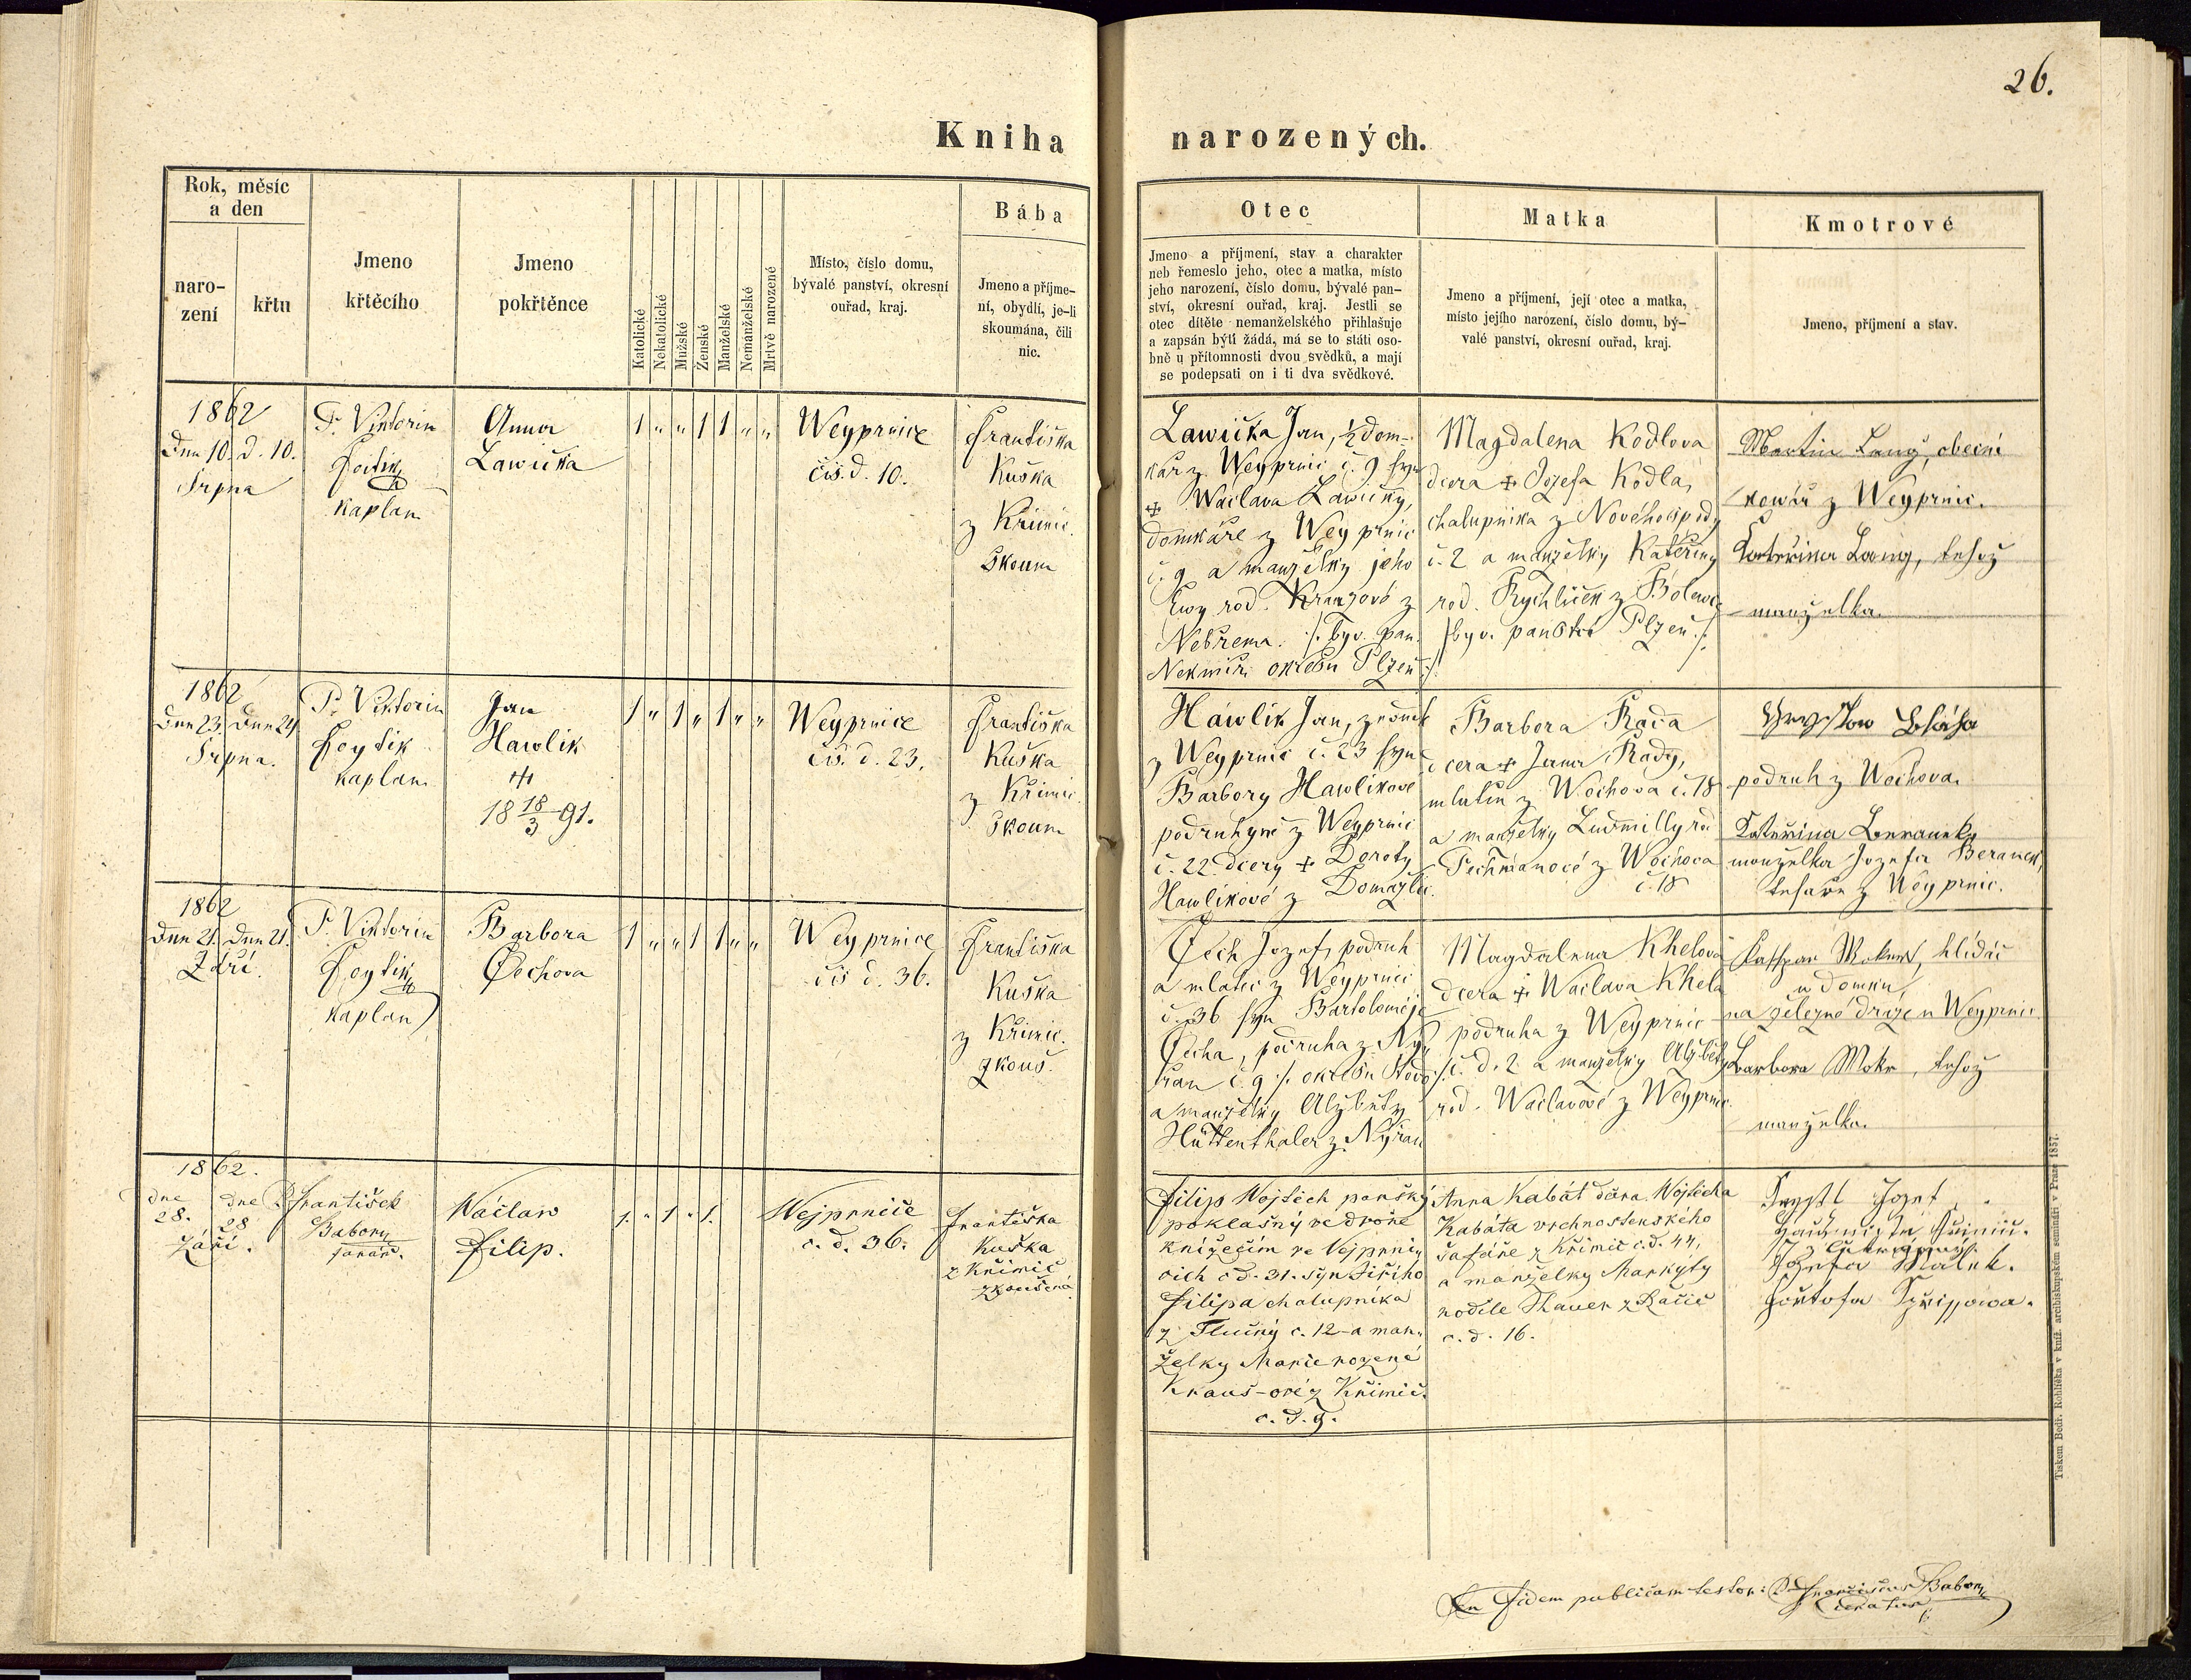 26.
Kniha narozených.
Rok, měsíc
a den
naro-
zení
křtu
Jmeno
křtěcího
Jmeno
pokřtěnce
Katolické
Nekatolické
Mužské
Ženské
Manželské
Nemanželské
Mrtvě narozené
Místo, číslo domu,
bývalé panství, okresní
ouřad, kraj.
Bába
Jmeno a příjme-
ní, obydlí, je-li
skoumána, čili
nic.
Otec
Jmeno a příjmení, stav a charakter
neb řemeslo jeho, otec a matka, místo
jeho narození, číslo domu, bývalé pan-
ství, okresní ouřad, kraj. Jestli se
otec dítěte nemanželského přihlašuje
a zapsán býti žádá, má se to státi oso-
bně u přítomnosti dvou svědků, a mají
se podepsati on i ti dva svědkové.
Matka
Jmeno a příjmení, její otec a matka,
místo jejího narození, číslo domu, bý-
valé panství, okresní ouřad, kraj.
Kmotrové
Jmeno, příjmení a stav.
1862
Dne 10. d. 10.
Srpna
P. Viktorin
Foitik
kaplan
Anna
Lawička
1 " " 1 1 " "
Weyprnice
čis. d. 10.
Františka
Kuška
z Křimic
Skoum
Lawička Jan, ½ dom-
kář z Weyprnic č. 9 syn
+ Waclava Lawičky,
domkáře z Weyprnic
č. 9 a manželky jeho
Ewy rod. Kranzové z
Nebřema. /: byv. pan.
Nekmíř okresu Plzeň :/
Magdalena Kodlova
dcera + Jozefa Kodla,
chalupnika z Novéhospody
č. 2 a manželky Kateřiny
rod. Rychliček z Bolewc
/: byv. panství Plzeň :/
Martin Lang, obecní
kowář z Weyprnic.
Kateřina Lang, tehož
manželka.
1862
Dne 23. Dne 24
Srpna.
P. Viktorin
Foytik
kaplan
Jan
Hawlik
+
18 18/3 91.
1 " 1 " 1 " "
Weyprnice
čis. d. 23.
Františka
Kuška
z Křimic.
Skoum
Hawlik Jan, zedník
z Weyprnic č. 23 syn
Barbory Hawlikové
podruhyně z Weyprnic
č. 22. dcery + Doroty
Hawlikové z Domažlic.
Barbora Rada
dcera + Jana Rady,
mlatce z Wochova č. 18
a manželky Ludmilly rod
Pechmanové z Wochova
č. 18
Blaha
podruh z Wochova.
Kateřina Beranek
manželka Jozefa Beranek,
tesaře z Weyprnic.
1862
Dne 21. Dne 21.
Září.
P. Viktorin
Foytik
kaplan
Barbora
Čechova
1 " " 1 1 " "
Weyprnice
čis d. 36.
Františka
Kuška
z Křimic.
zkouš.
Čech Jozef, podruh
a mlatec z Weyprnic
č. 36 syn Bartoloměje
Čecha, podruha z Ný-
řan č. 9 /: okresu Stod :/
a manželky Alžběty
Hüttenthaler z Nýřan
Magdalena Khelová
dcera + Waclava Khela
podruha z Weyprnic
č. d. 2 a manželky Alžběty
rod. Waclavové z Weyprnic.
Kašpar Mokr, hlídač
u domku
na železné dráze u Weyprnic
Barbora Mokr, tehož
manželka.
1862.
dne 28. dne 28
Září.
P. František
Baborý
farář.
Wáclaw
Filip.
1. " 1 " 1.
Wejprnice
č. d. 36.
Františka
Kuška
z Křimic
zkoušená
Filip Wojtěch panský
poklasný ve dvoře
knížecím ve Vejprni-
cich č d. 31. syn Jiřího
Filipa chalupníka
z Tlučný č. 12 a man-
želky Marie rozené
Kraus-ové z Křimic.
č. d. 9.
Anna Kabát dcera Wojtěcha
Kabáta vrchnostenského
šafáře z Křimic č. d. 44,
a manželky Markýty
rodile Hauer z Račic
č. d. 16.
Jozef
In fidem publicam testor: P. Franciscus Baborý
curatus
Tiskem Bedř. Rohlíčka v kníž. archibiskupském semináři v Praze 1857.